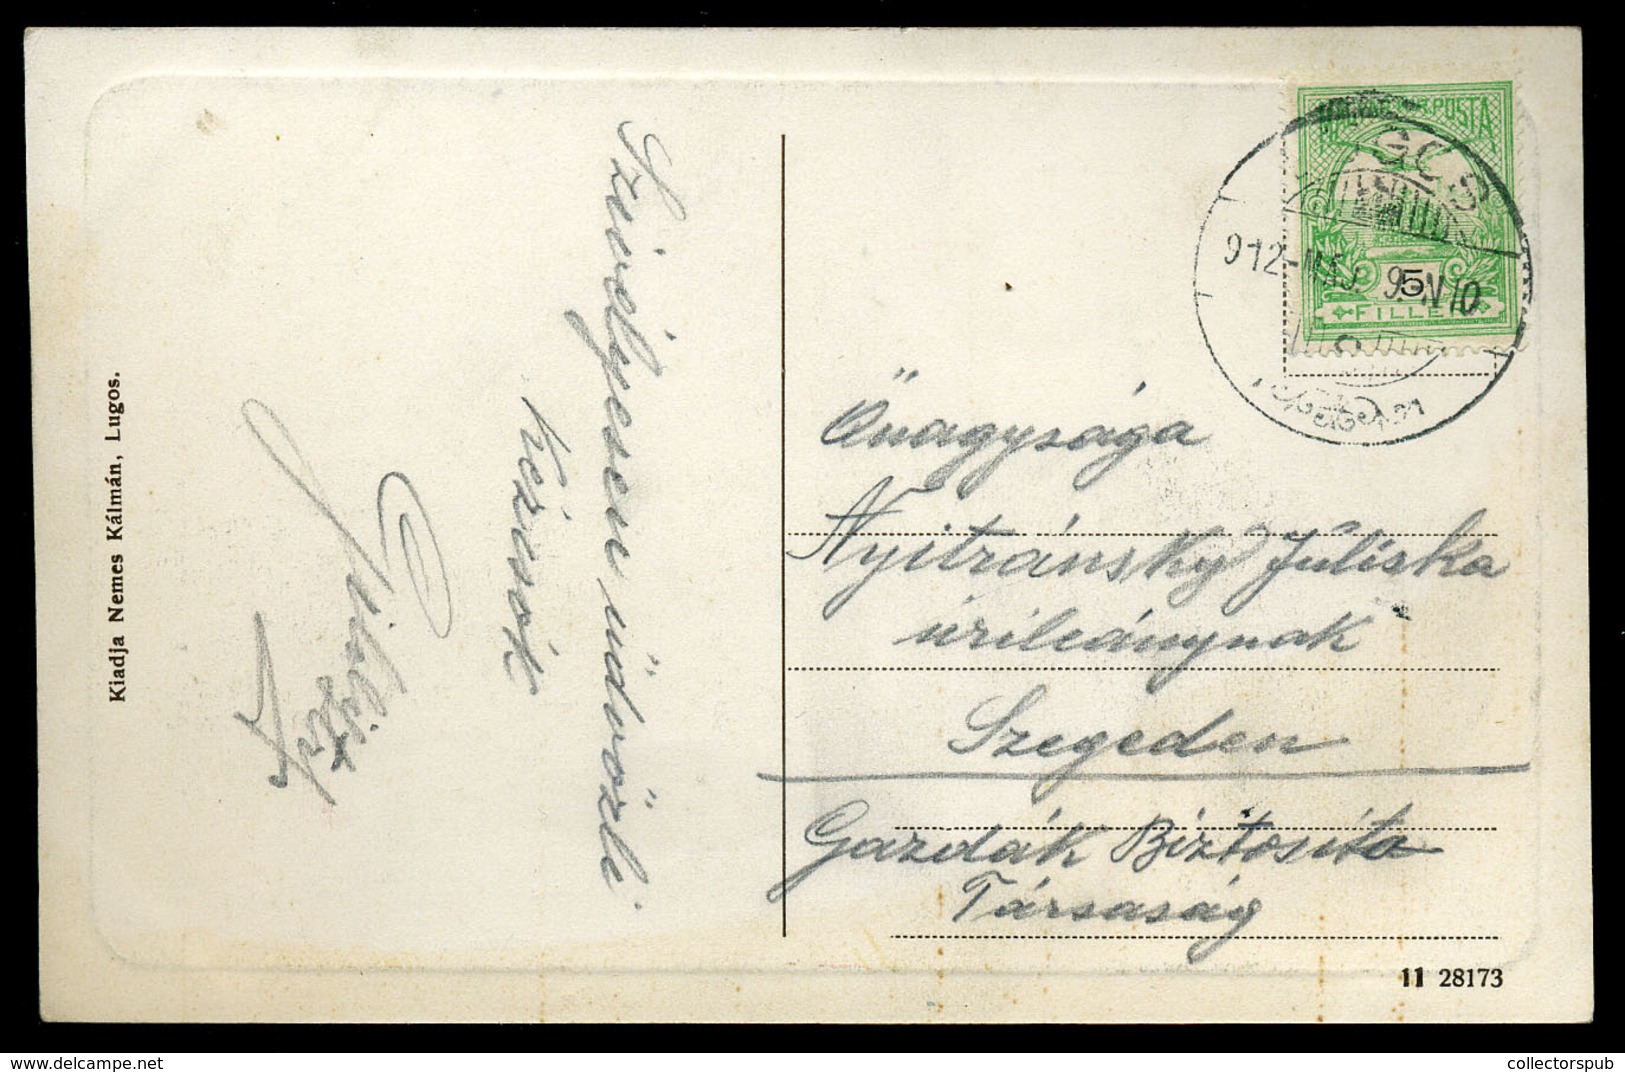 Kiadja Nemes Kálmán, Lugos.
Szivélyesen üdvözli
MAGYAR KIR. POSTA
GOS
912-MÁJ. 9-N10
5
FILLÉR
Önagysága
Nyitránsky Júliska
úrileánynak
Szegeden
Gazdák Biztosíta
Társaság
11 28173
www.delcampe.net
collectorspub